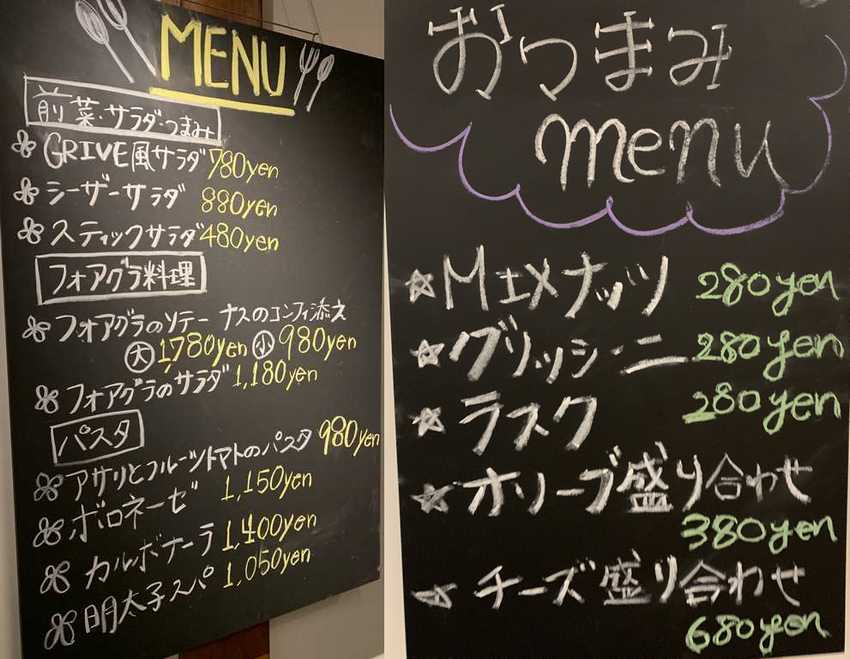 MENU
前菜・サラダ・つまみ
GRIVE風サラダ 780yen
シーザーサラダ 880yen
スティックサラダ 480yen
フォアグラ料理
フォアグラのソテー ナスのコンフィ添え
大 1,780yen 小 980yen
フォアグラのサラダ 1,180yen
パスタ
アサリとフルーツトマトのパスタ 980yen
ボロネーゼ 1,150yen
カルボナーラ 1,400yen
明太子スパ 1,050yen
おつまみ
menu
☆MIXナッツ 280yen
☆グリッシーニ 280yen
☆ラスク 280yen
☆オリーブ盛り合わせ
380yen
☆チーズ盛り合わせ
680yen